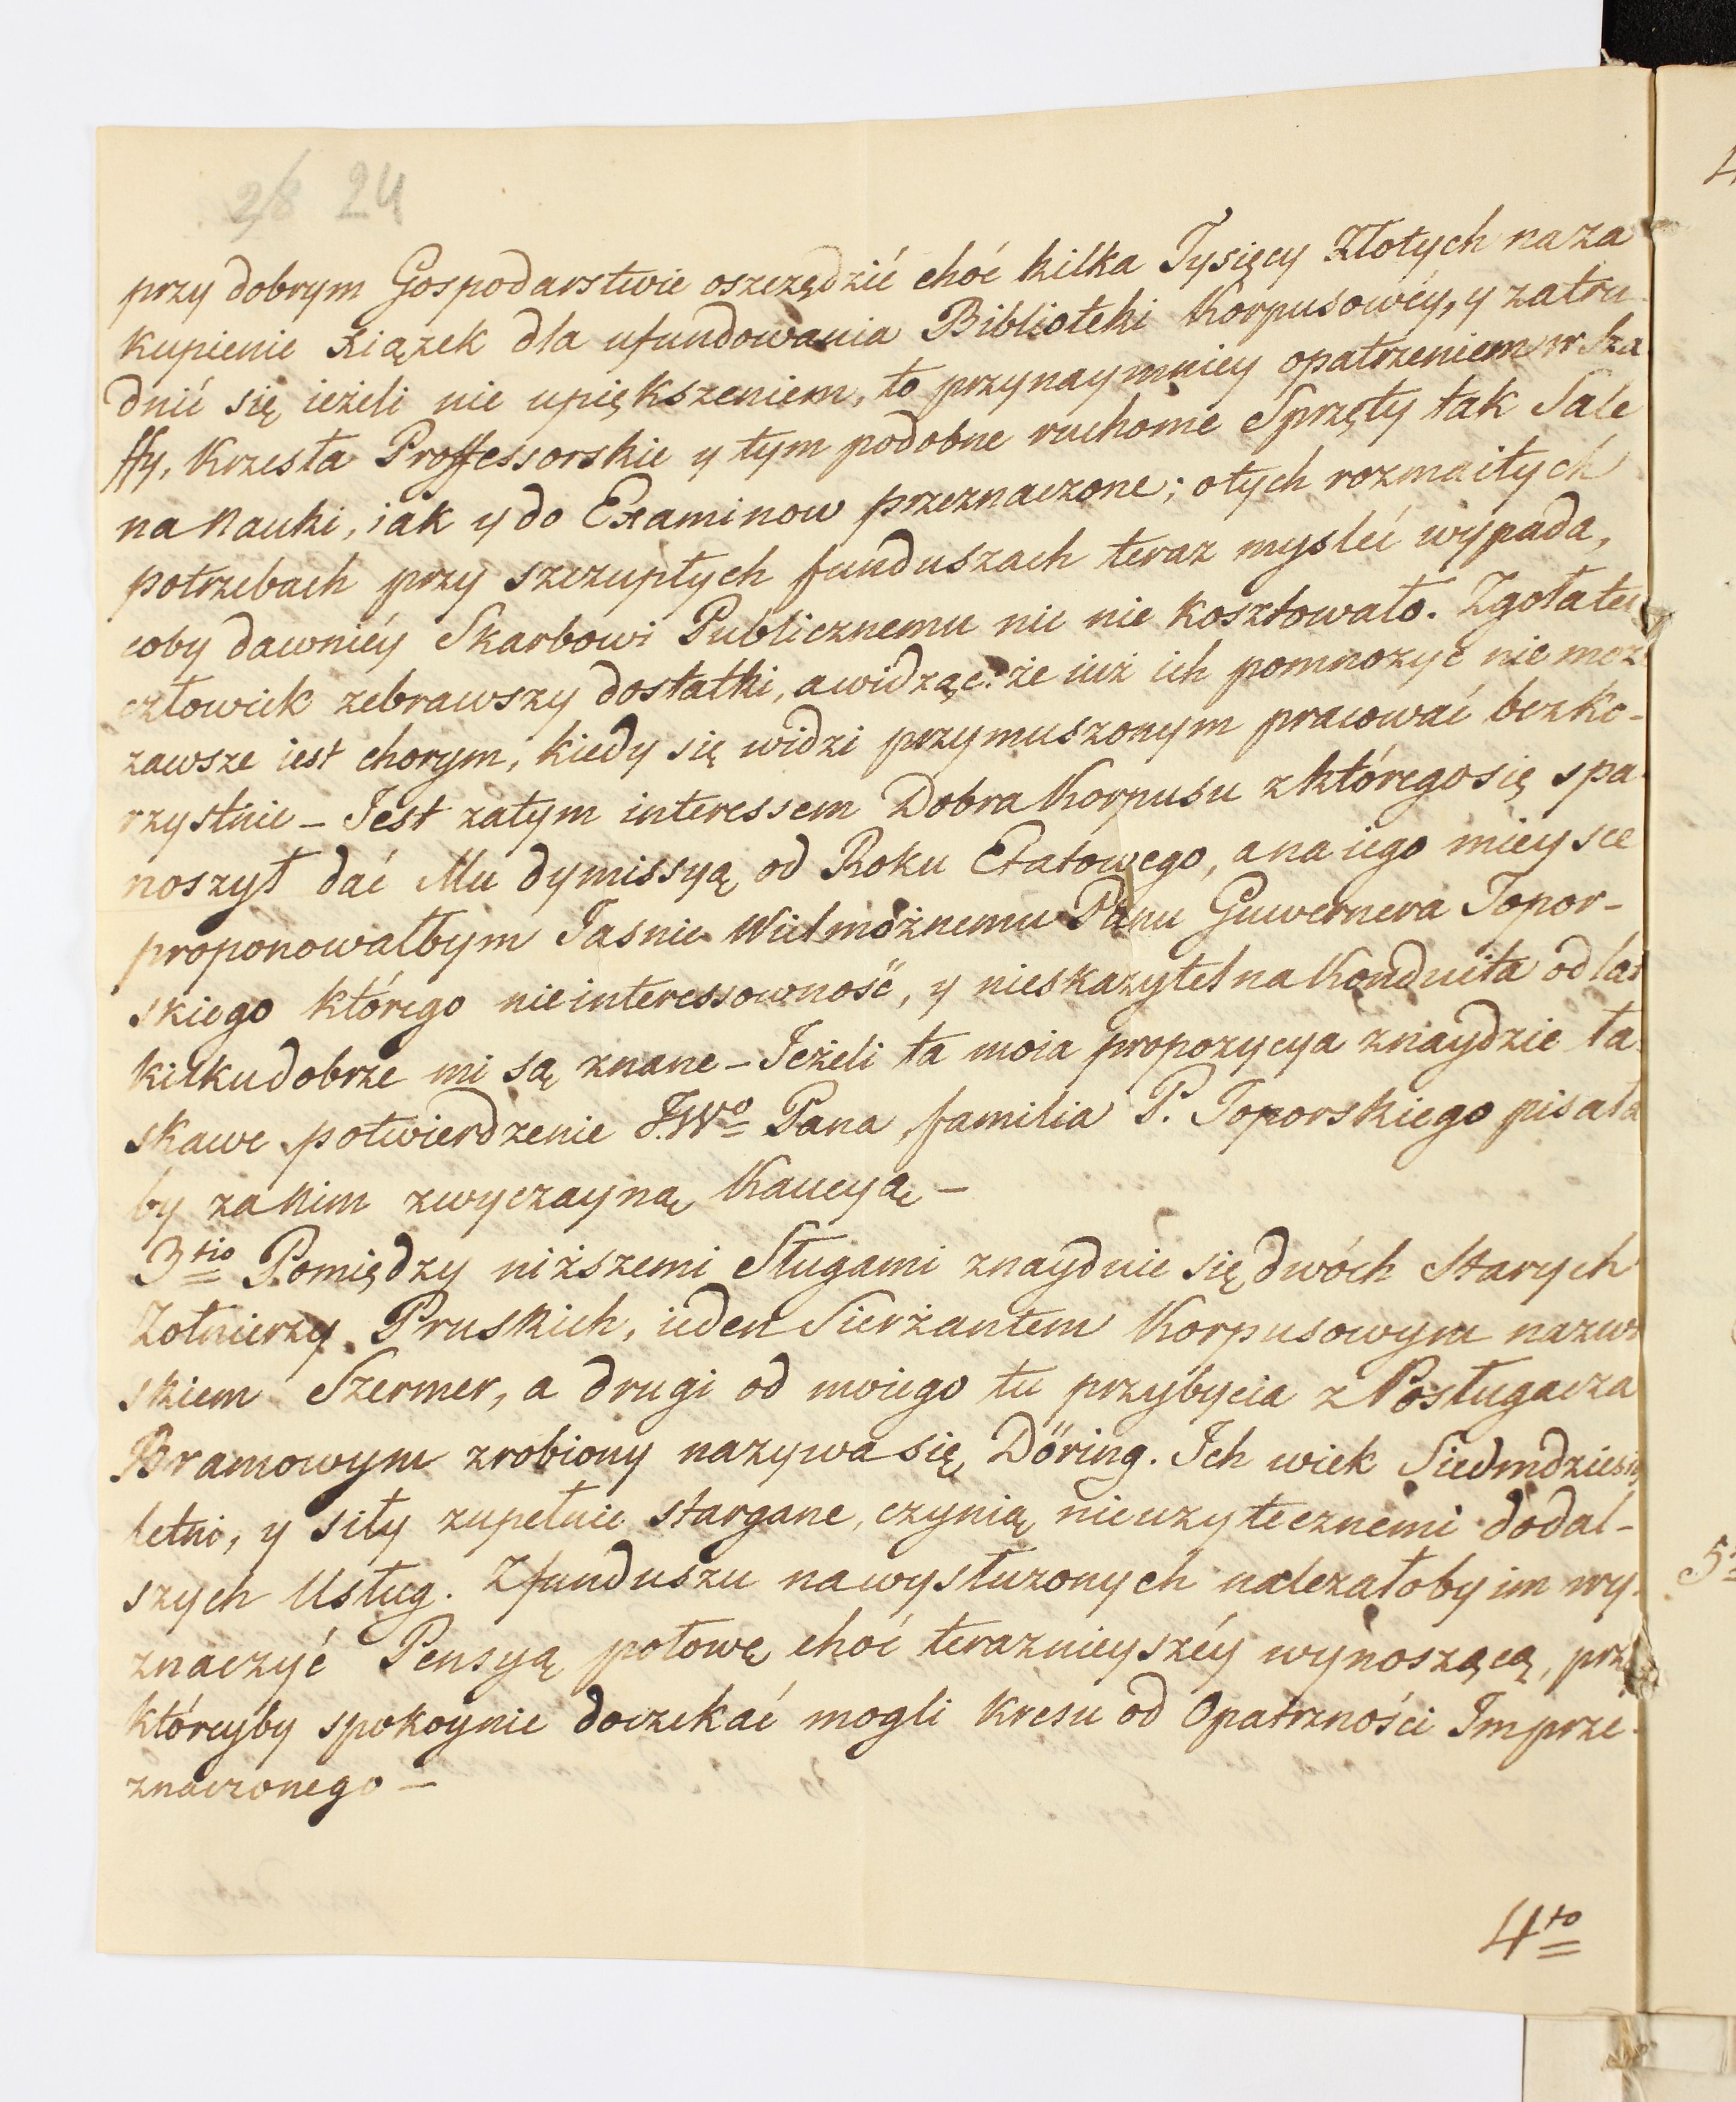 2/8 24
przy dobrym Gospodarstwie oszczędzić choć kilka Tysięcy Złotych na za
kupienie Xiążek dla ufundowania Biblioteki Korpusowéy, y zatru-
dnić się ieżeli nie upiększeniem, to przynaymniey opatrzeniem w Sza
ffy, Krzesła Proffessorskie y tym podobne ruchome Sprzęty tak Sale
na Nauki, iak y do Examinow przeznaczone; o tych rozmaitych
potrzebach przy szczupłych funduszach teraz mysleć wypada,
coby dawniéy Skarbowi Publicznemu nic nie kosztowało. Zgoła ten
człowiek zebrawszy dostatki, a widząc że iuż ich pomnożyć nie moż
zawsze iest chorym, kiedy się widzi przymuszonym pracować bezko-
rzystnie – Jest zatym interessem Dobra Korpusu z którego się spa-
noszył dać Mu dymissyą od Roku Etatowego, a na iego mieysce
proponowałbym Jasnie Wielmożnemu Panu Guwernera Topor-
skiego którego nieinteressowność, y nieskazytelna Konduita od lat
kilku dobrze mi są znane – Jeżeli ta moia propozycya znaydzie ła-
skawe potwierdzenie J.Wo Pana, familia P. Toporskiego pisała
by za Nim zwyczayną Kaucyą –
3tio Pomiędzy niższemi Sługami znayduie się dwóch Starych
Zołnierzy Pruskich, ieden Sierżantem Korpusowym nazwi
skiem Szermer, a drugi od moiego tu przybycia z Posługacza
Bramowym zrobiony nazywa się Döring. Ich wiek Siedmdziesią
letni, y siły zupełnie stargane, czynią nieuzytecznemi do dal-
szych Usług. Z funduszu na wysłużonych należałoby im wy-
znaczyć Pensyą połowę choć teraznieyszéy wynoszącą, przy
któreyby spokoynie doczekać mogli kresu od Opatrzności Im prze-
znaczonego –
4to